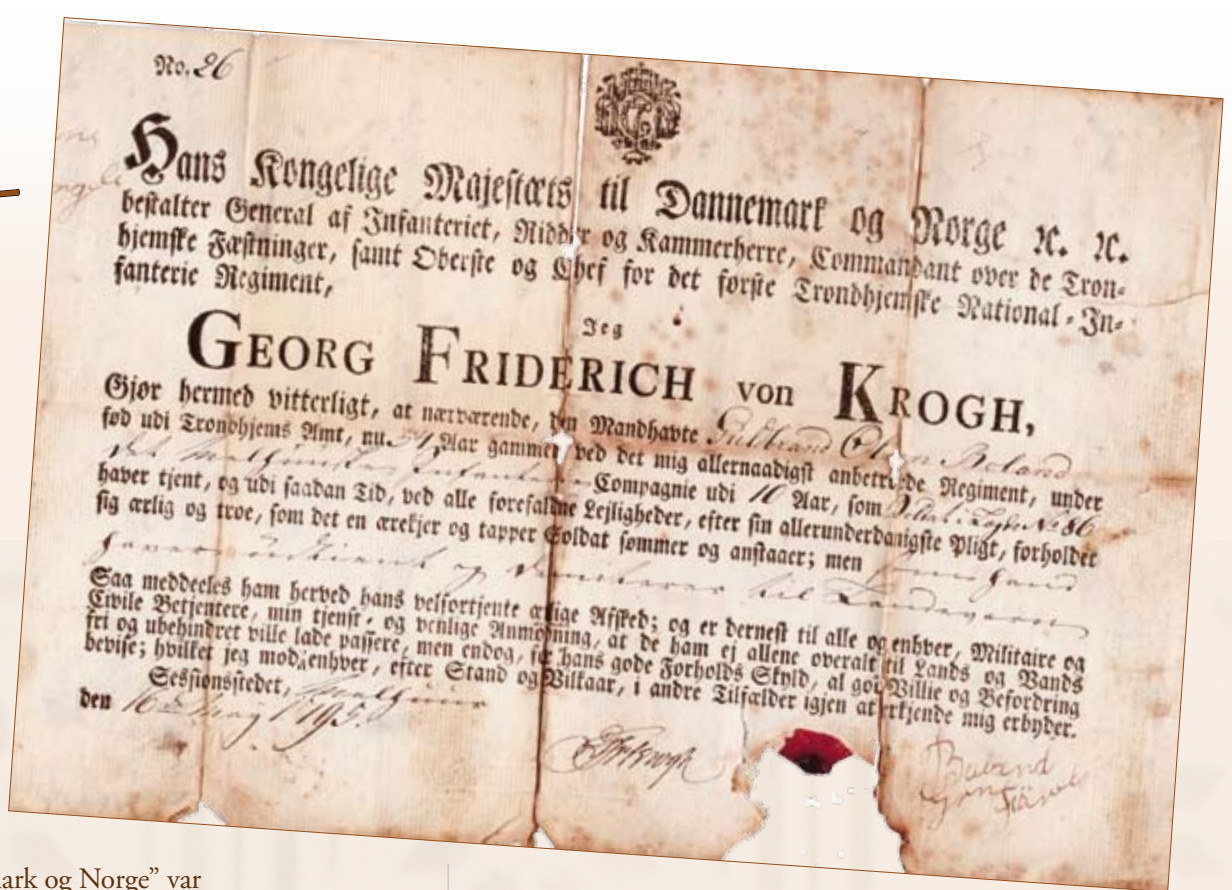 No. 26
Hans Kongelige Majestæts til Dannemark og Norge ꝛc. ꝛc.
bestalter General af Infanteriet, Ridder og Kammerherre, Commandant over de Tron-
hjemske Fæstninger, samt Oberste og Chef for det første Trondhjemske National-In-
fanterie Regiment,
Jeg
GEORG FRIDERICH von KROGH,
Gjør hermed vitterligt, at nærværende, den Mandhavte Guldbrand Olsen
fød udi Trondhjems Amt, nu Aar gammel, ved det mig allernaadigst anbetroede Regiment, under
det Infanterie Compagnie udi 10 Aar, som No 86
haver tjent, og udi saadan Tid, ved alle forefaldne Lejligheder, efter sin allerunderdanigste Pligt, forholdet
sig ærlig og troe, som det en ærekjer og tapper Soldat sømmer og anstaaer; men
haver udtient og til Landeværn
Saa meddeeles ham herved hans velfortjente ærlige Afsked; og er dernest til alle og enhver, Militaire og
Civile Betjentere, min tjenst- og venlige Anmodning, at de ham ej allene overalt til Lands og Vands
fri og ubehindret ville lade passere, men endog, for hans gode Forholds Skyld, al god Villie og Befordring
bevise; hvilket jeg mod enhver, efter Stand og Vilkaar, i andre Tilfælder igjen at erkjende mig erbyder.
Sessionsstedet,
den 16 May 1795.
Krogh
ark og Norge” var